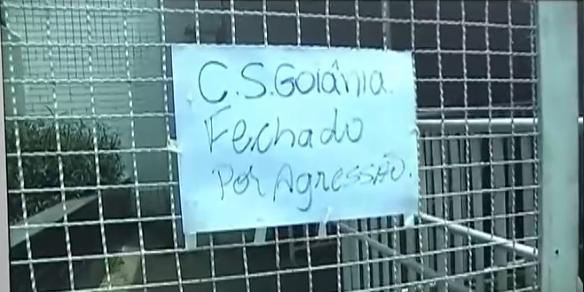 C.S.Goiânia.
Fechado
Por Agressão.